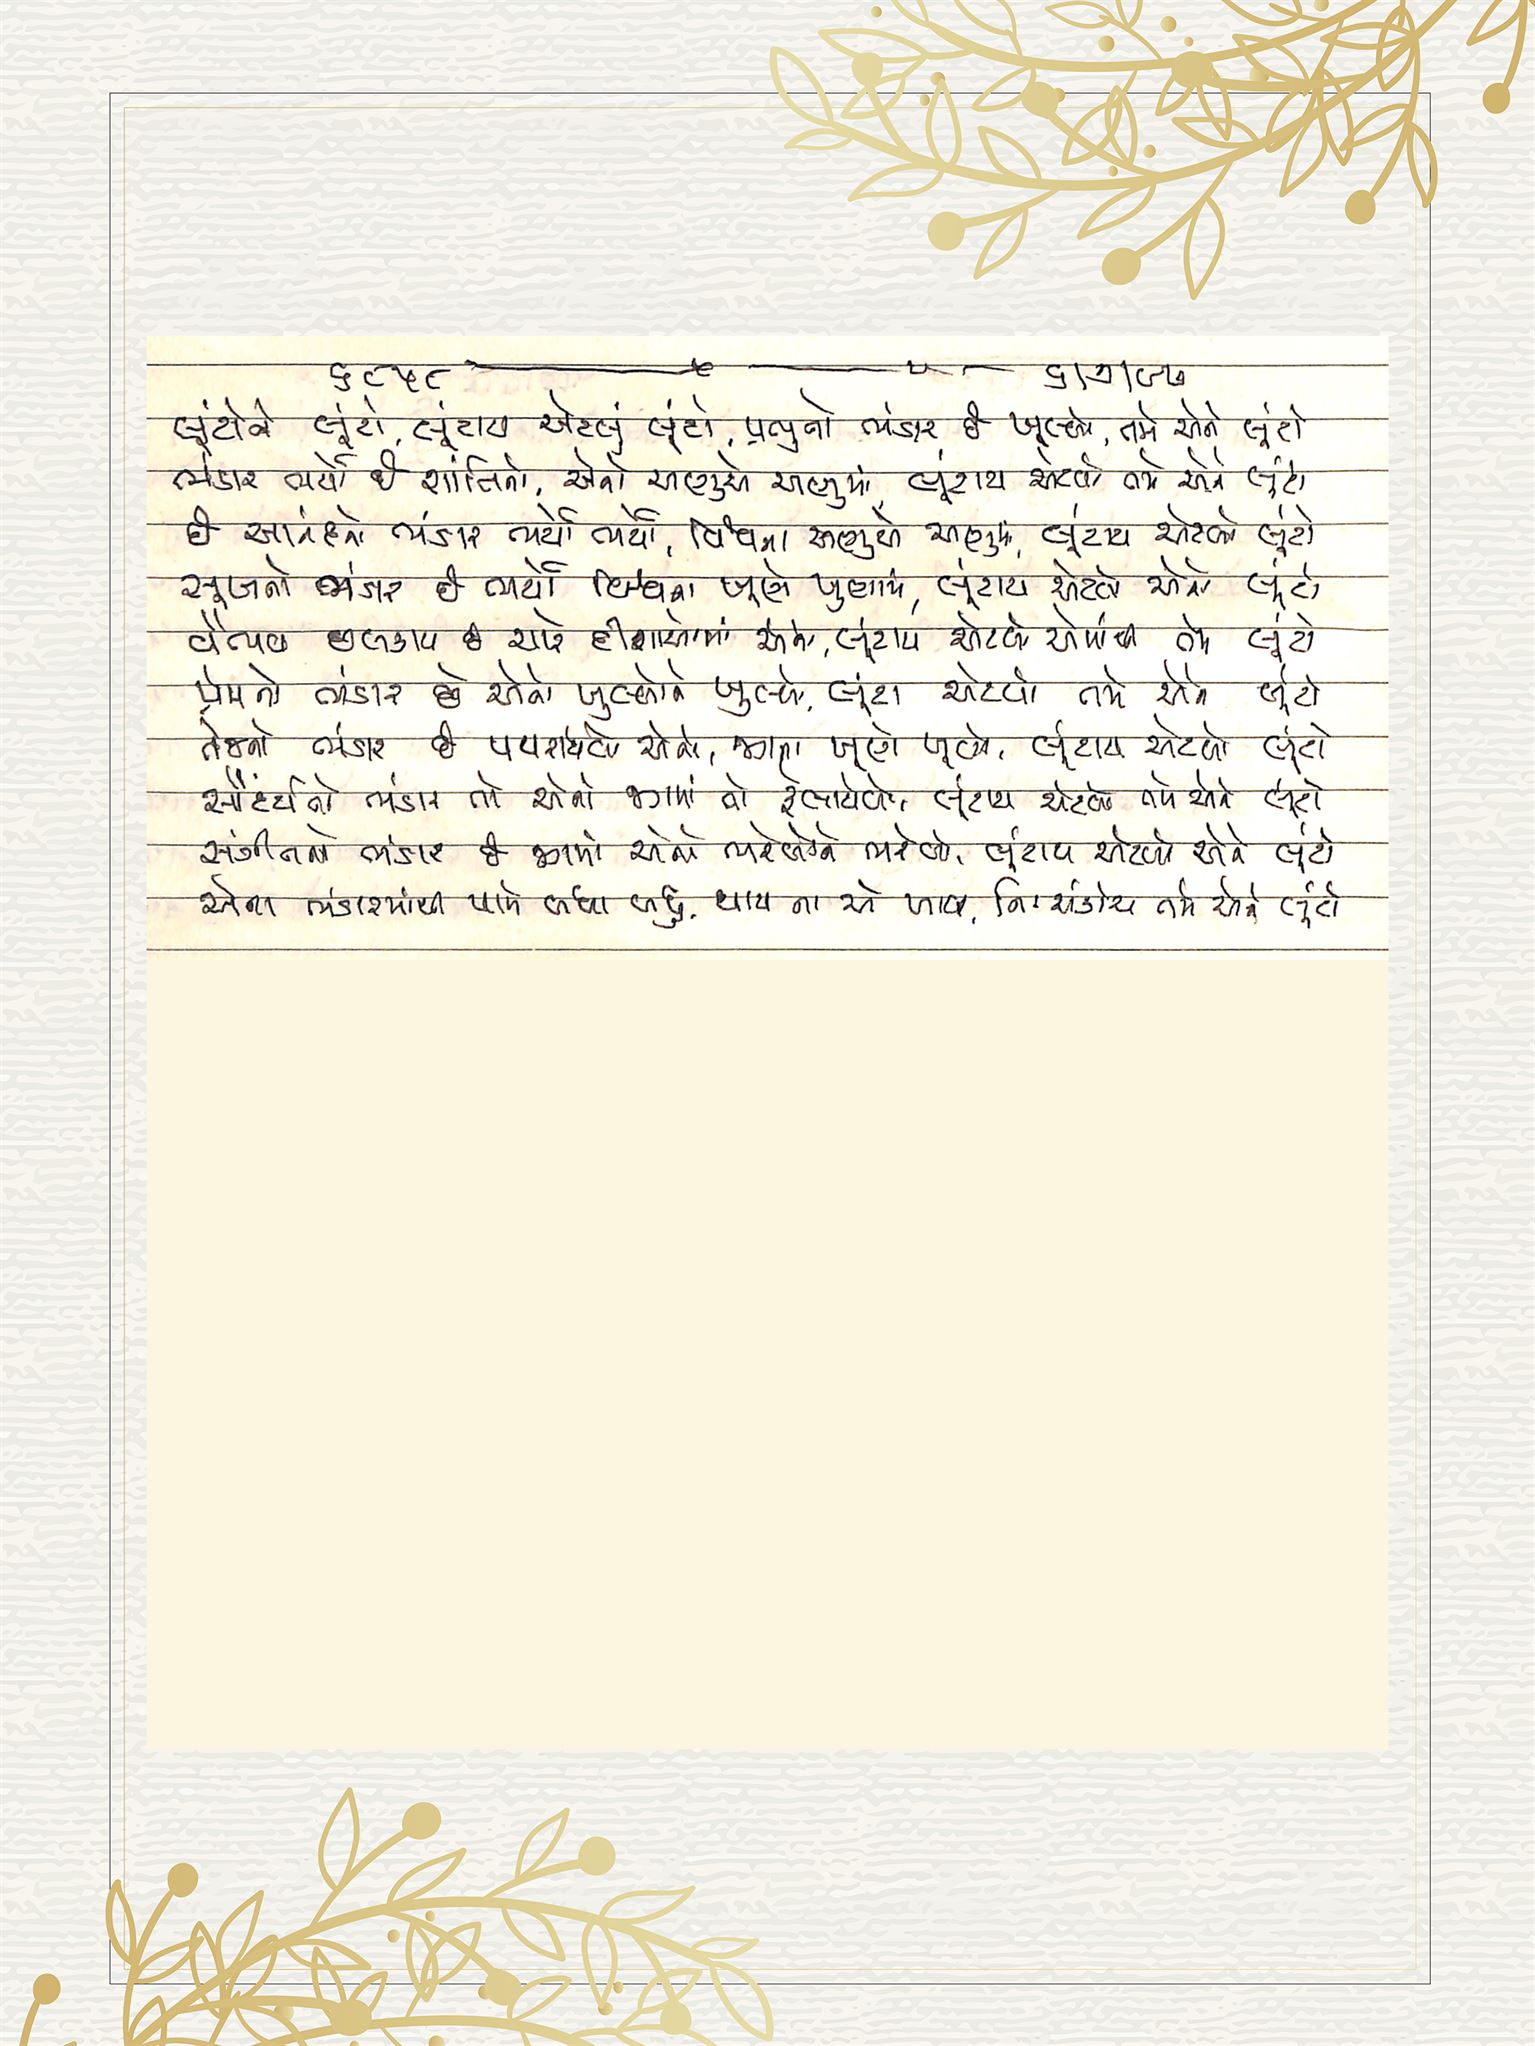 ૬૮૫૮ ૬/૭/૯૭
લૂંટોને લૂંટો, લૂંટાય એટલું લૂંટો, પ્રભુનો ભંડાર છે ખૂલ્લો, તમે એને લૂંટો
ભંડાર ભર્યો છે શાંતિનો, એનો અણુએ અણુમાં, લૂંટાય એટલો તમે એને લૂંટો
છે આનંદનો ભંડાર ભર્યો ભર્યો, વિશ્વના અણુએ અણુમાં, લૂંટાય એટલો લૂંટો
સૂખનો ભંડાર છે ભર્યો વિશ્વના ખૂણે ખુણામાં, લૂંટાય એટલો એને લૂંટો
વૈભવ છલકાય છે ચારે દીશાઓમાં એનો, લૂંટાય એટલો એમાંથી તમે લૂંટો
પ્રેમનો ભંડાર છે એનો ખુલ્લોને ખુલ્લો, લૂંટો એટલો તમે એને લૂંટો
તેજનો ભંડાર છે પથરાયેલો એનો, જગના ખૂણે ખૂણે, લૂંટાય એટલો લૂંટો
સૌંદર્યનો ભંડાર તો એનો જગમાં તો ફેલાયેલો, લૂંટાય એટલો તમે એને લૂંટો
સંગીતનો ભંડાર છે જગમાં એનો ભરેલોને ભરેલો, લૂંટાય એટલો એને લૂંટો
એના ભંડારમાંથી પામે બધા બધું, થાય ના એ ખાલી, નિઃસંકોચ તમે એને લૂંટો